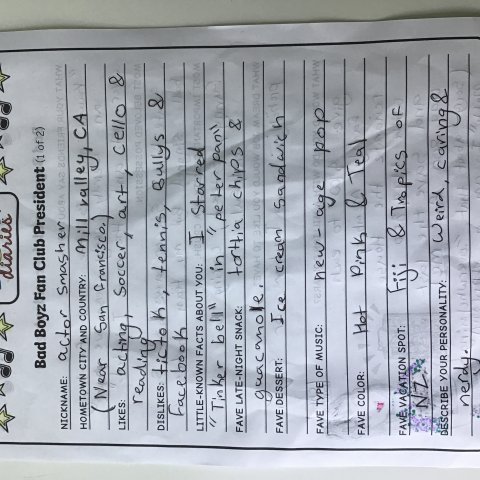 diaries
Bad Boyz Fan Club President (1 of 2)
NICKNAME: actor smasher
HOMETOWN CITY AND COUNTRY: Mill valley, CA
(Near San Francisco)
LIKES: acting, soccer, art, cello &
reading
DISLIKES: tictok, tennis, Bullys &
Facebook
LITTLE-KNOWN FACTS ABOUT YOU: I starred
"Tinker bell" in "peter pan"
FAVE LATE-NIGHT SNACK: torttia chips &
guacamole.
FAVE DESSERT: Ice cream Sandwich
FAVE TYPE OF MUSIC: new-age pop
FAVE COLOR: Hot Pink & Teal
FAVE VACATION SPOT: Fiji & Tropics of
NZ
DESCRIBE YOUR PERSONALITY: weird, caring &
nerdy.